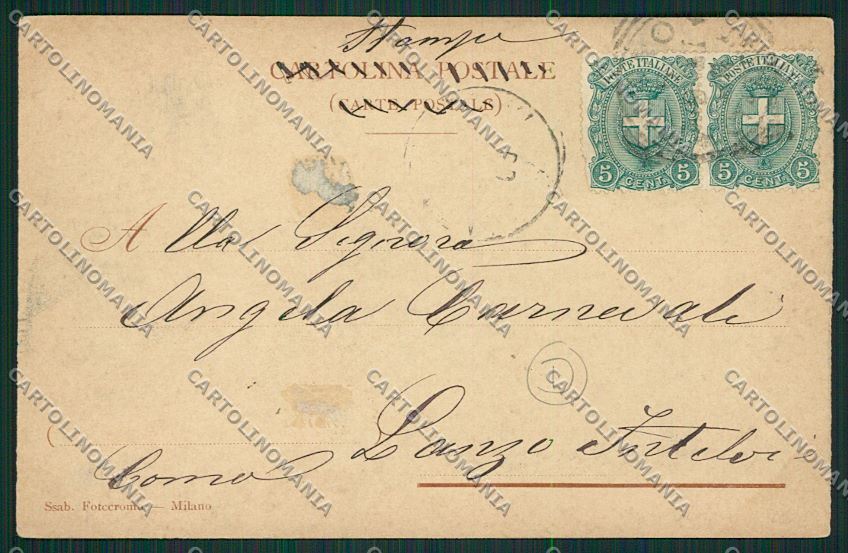 Stampe
CARTOLINA POSTALE
(CARTE POSTALE)
POSTE ITALIANE
5 CENT. 5
POSTE ITALIANE
5 CENT. 5
Alla Signora
Angela Carnevali
Lanzo Intelvi
Como
Ssab. Fotocroma — Milano
CARTOLINOMANIA